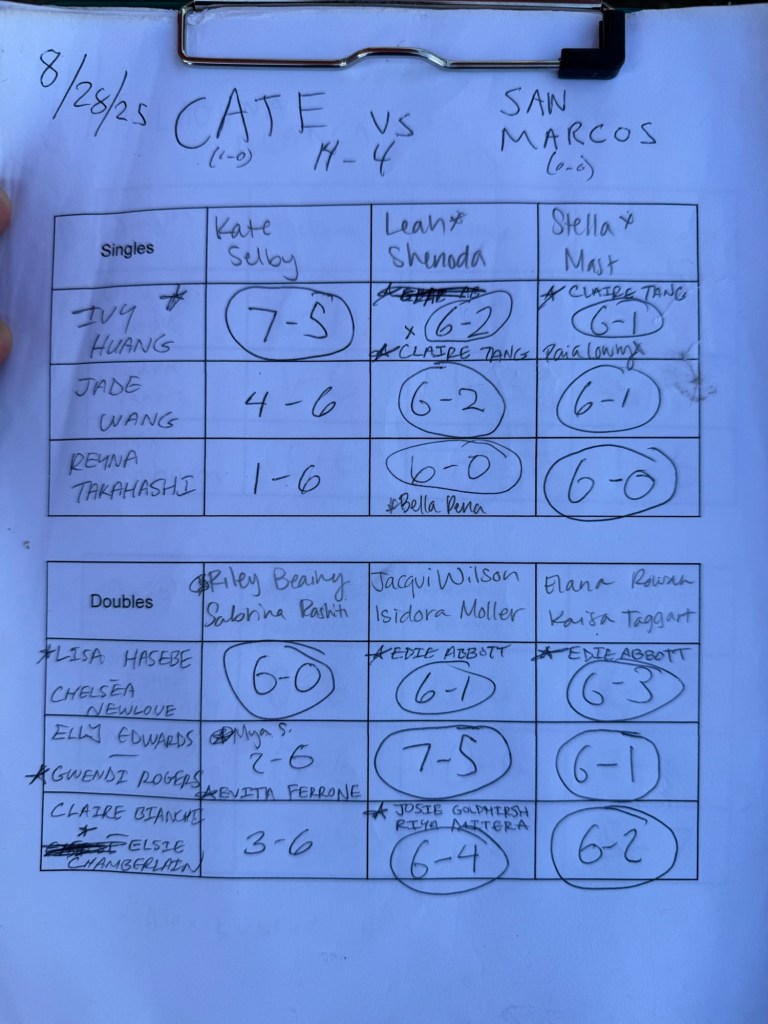 8/28/25
CATE vs SAN MARCOS
(1-0) 14-4 (0-0)
Singles Kate Selby Leah* Shenoda Stella* Mast
IVY* HUANG 7-5 x 6-2 * CLAIRE TANG * CLAIRE TANG 6-1 Paia Lowry*
JADE WANG 4-6 6-2 6-1
REYNA TAKAHASHI 1-6 6-0 *Bella Pena 6-0
Doubles Riley Beainy Sabrina Rashiti Jacqui Wilson Isidora Moller Elana Rowan Kaisa Taggart
*LISA HASEBE CHELSEA NEWLOVE 6-0 *EDIE ABBOTT 6-1 *EDIE ABBOTT 6-3
ELLY EDWARDS - *GWENDI ROGERS Mya S. 2-6 *EVITA FERRONE 7-5 6-1
CLAIRE BIANCHI * - ELSIE CHAMBERLAIN 3-6 * JOSIE GOLDHIRSH RIYA 6-4 6-2